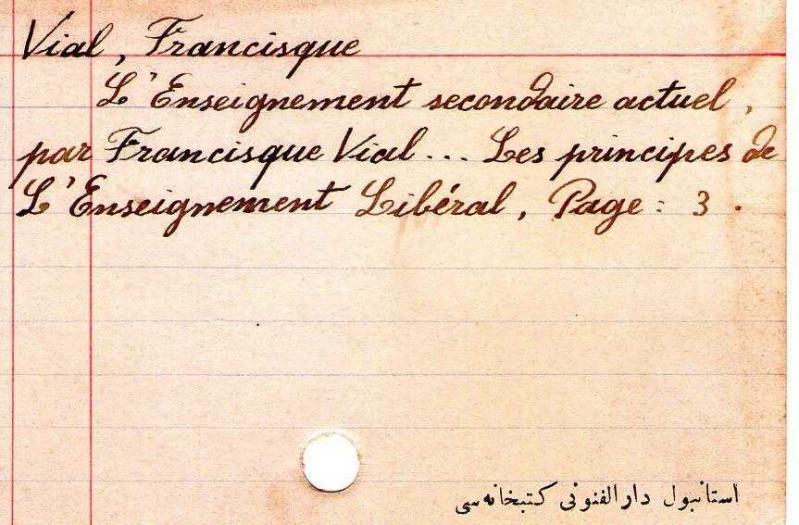 Vial, Francisque
L'Enseignement secondaire actuel,
par Francisque Vial... Les principes de
L'Enseignement Libéral, Page : 3.
استانبول دار الفنونی کتبخانه‌سی